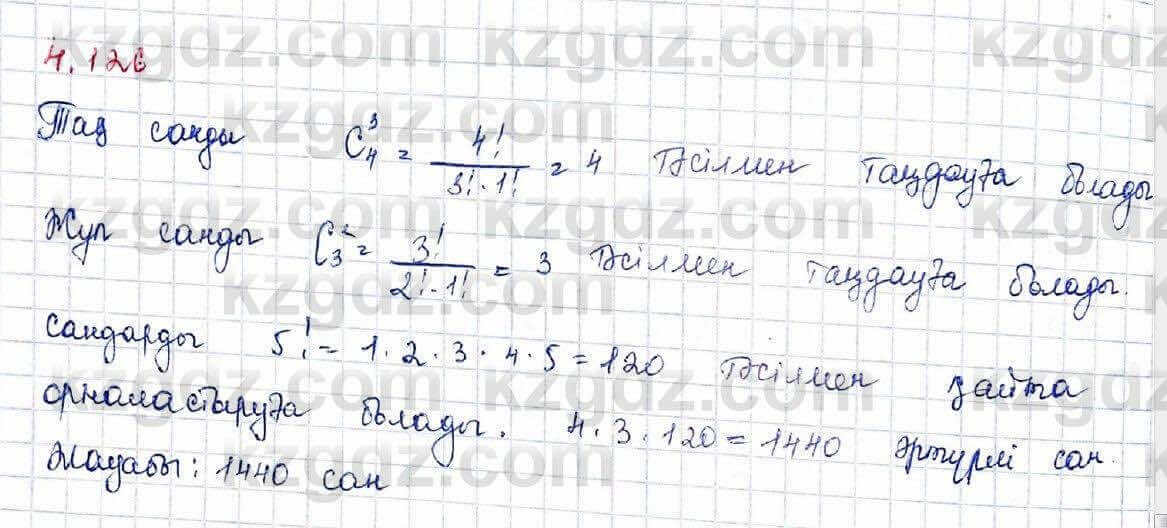 4.126
Тақ санды C₄³ = 4! / 3!·1! = 4 тәсілмен таңдауға болады
Жұп санды C₃² = 3! / 2!·1! = 3 тәсілмен таңдауға болады.
сандарды 5! = 1·2·3·4·5 = 120 тәсілмен қайта
орналастыруға болады. 4·3·120 = 1440 әртүрлі сан.
Жауабы: 1440 сан
kzgdz.com